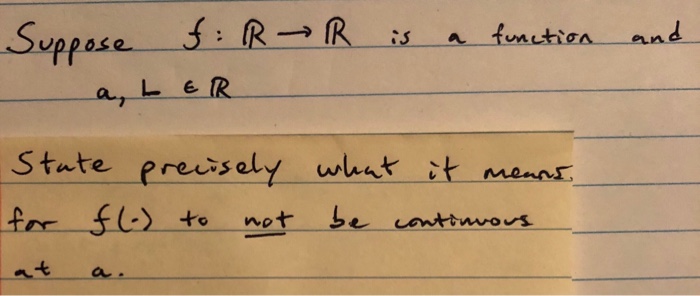 Suppose f : ℝ → ℝ is a function and
a, L ∈ ℝ
State precisely what it means
for f(·) to not be continuous
at a.